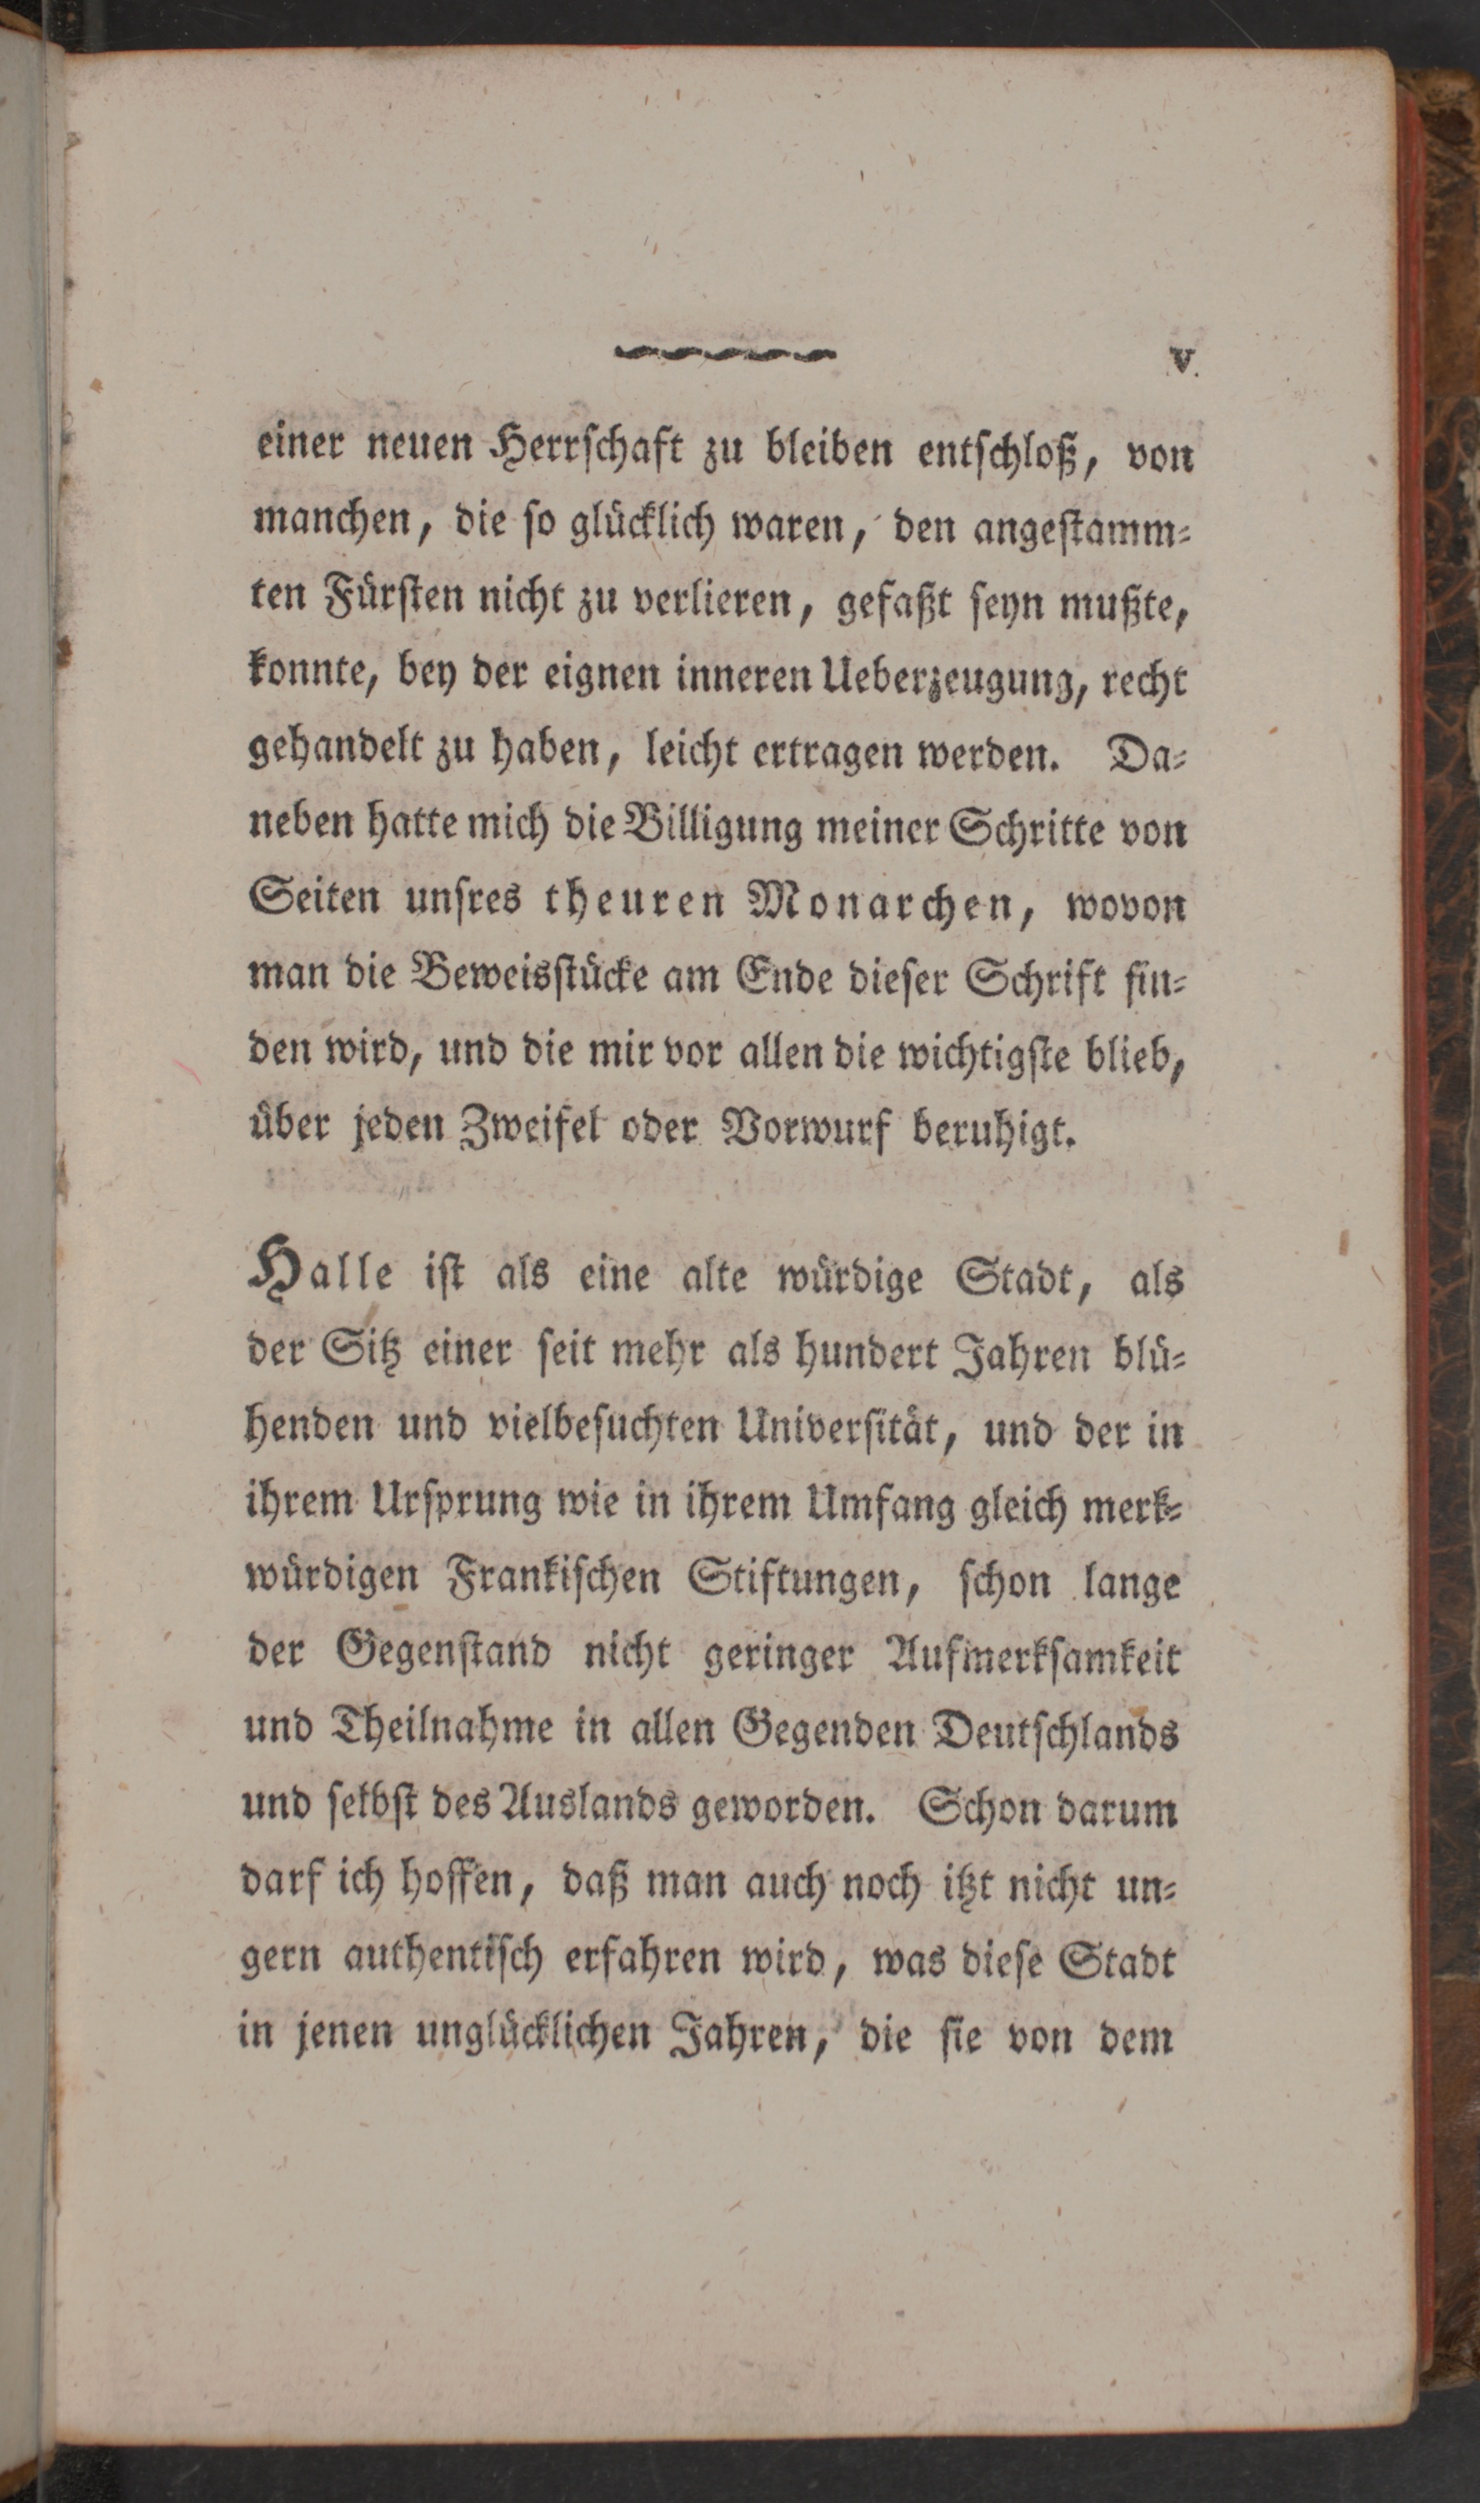 V
einer neuen Herrschaft zu bleiben entschloß, von
manchen, die so glücklich waren, den angestamm-
ten Fürsten nicht zu verlieren, gefaßt seyn mußte,
konnte, bey der eignen inneren Ueberzeugung, recht
gehandelt zu haben, leicht ertragen werden. Da-
neben hatte mich die Billigung meiner Schritte von
Seiten unsres theuren Monarchen, wovon
man die Beweisstücke am Ende dieser Schrift fin-
den wird, und die mir vor allen die wichtigste blieb,
über jeden Zweifel oder Vorwurf beruhigt.
Halle ist als eine alte würdige Stadt, als
der Sitz einer seit mehr als hundert Jahren blü-
henden und vielbesuchten Universität, und der in
ihrem Ursprung wie in ihrem Umfang gleich merk-
würdigen Frankischen Stiftungen, schon lange
der Gegenstand nicht geringer Aufmerksamkeit
und Theilnahme in allen Gegenden Deutschlands
und selbst des Auslands geworden. Schon darum
darf ich hoffen, daß man auch noch itzt nicht un-
gern authentisch erfahren wird, was diese Stadt
in jenen unglücklichen Jahren, die sie von dem